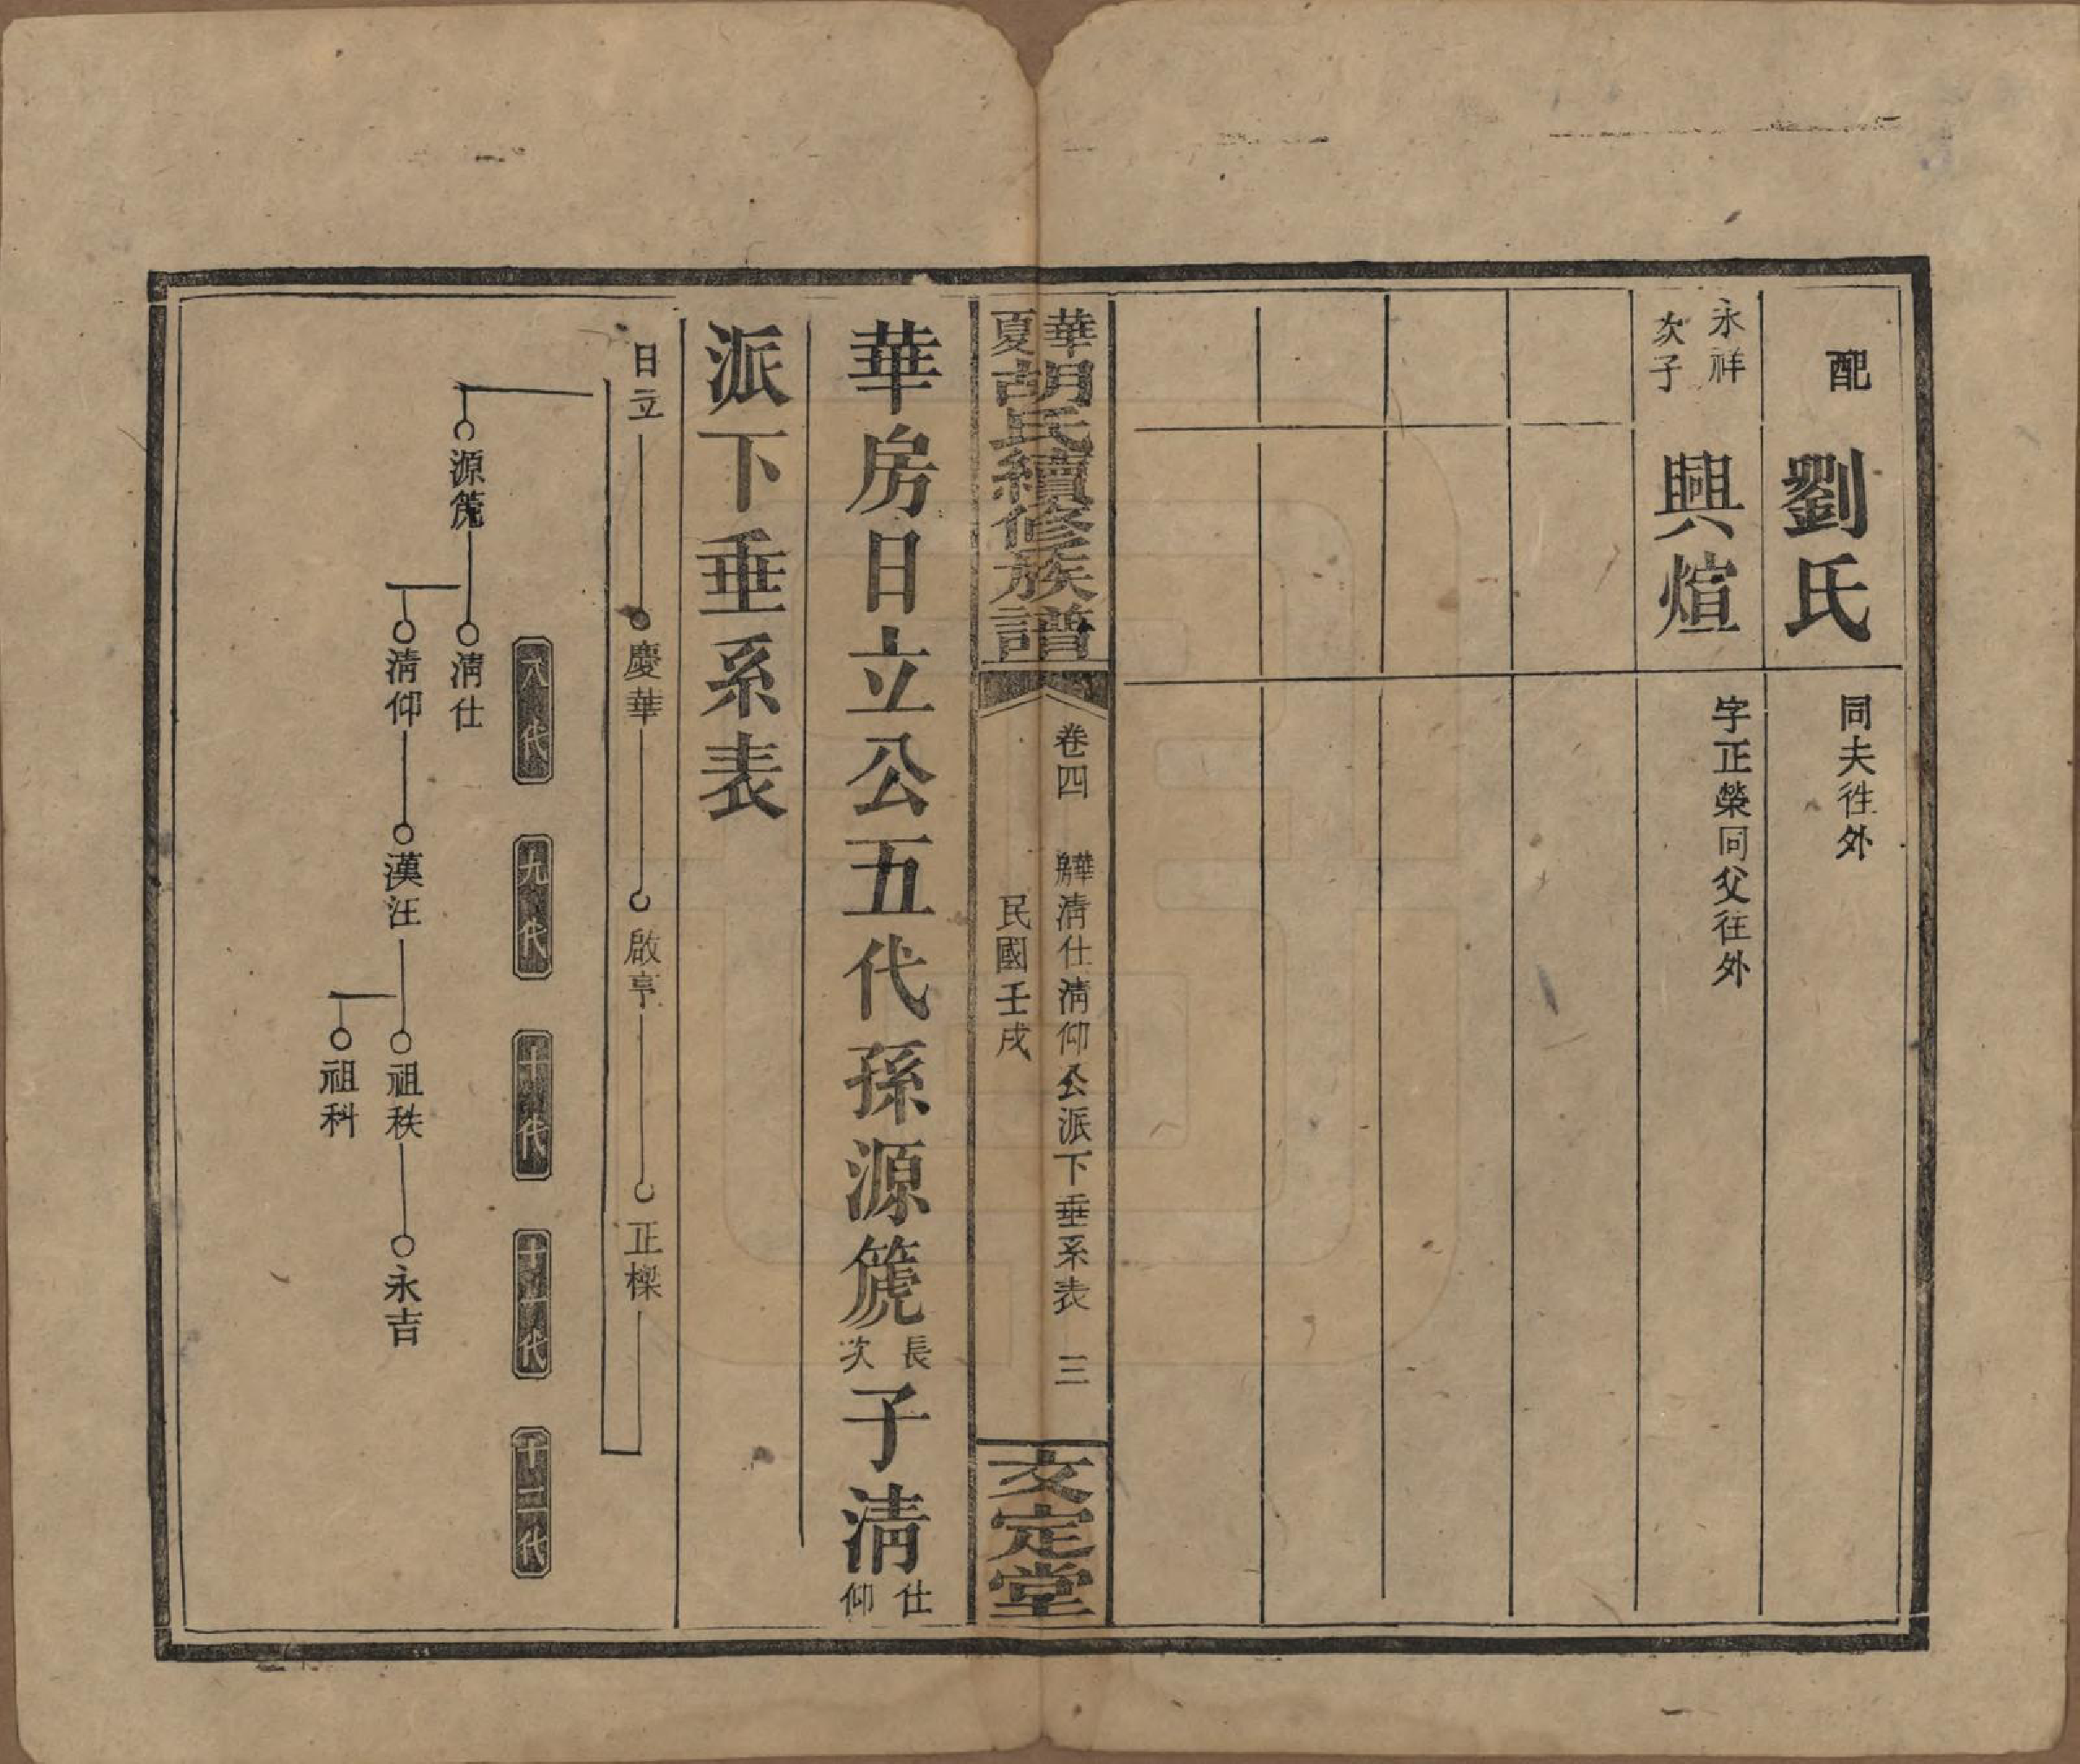 配
劉氏
同夫徃外
永祥
次子
興煊
字正榮同父往外
華夏胡氏續修族譜
卷四
華房清仕清仰公派下垂系表
三
民國壬戌
文定堂
華房日立公五代孫源箎長次子清仕仰
派下垂系表
日立
慶華
啟亨
正樑
八代
九代
十代
十一代
十二代
源箎
清仕
清仰
漢汪
祖秩
永吉
祖科